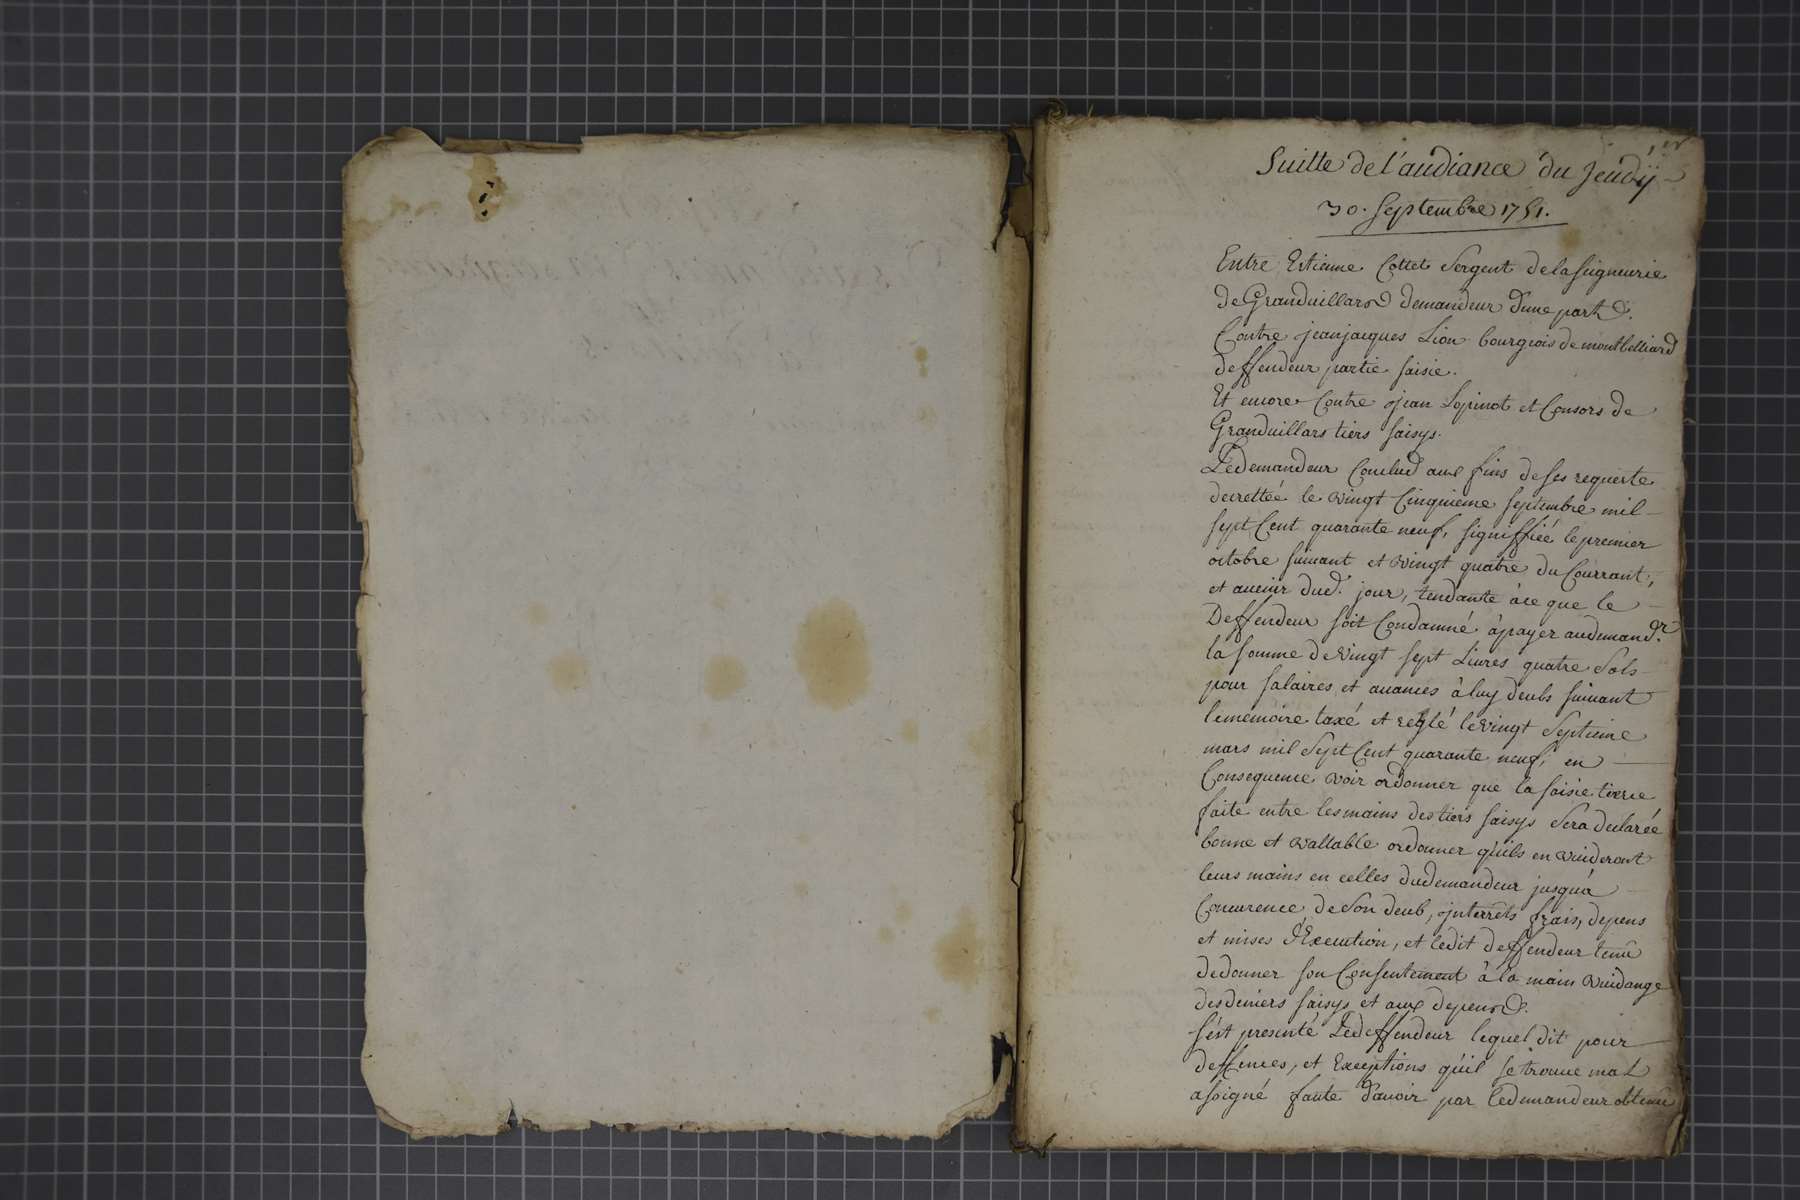 Suitte de l'audiance du Jeudÿ
30. Septembre 1751.
Entre Estienne Cottet Sergent de la Seigneurie
de Granduillars demandeur d'une part
Contre jeanjacques Lion bourgeois de montbelliard
deffendeur partie saisie.
Et encore Contre jean Lopinot et Consors de
Granduillars tiers saisys.
Ledemandeur Conclud aux fins de ses requeste
decrettée le vingt Cinquieme septembre mil
sept Cent quarante neuf, signiffiée le premier
octobre suiuant et vingt quatre du Courrant,
et auenir dud. jour, tendante à ce que le
Deffendeur soit Condamné à payer au demandr.
la somme de vingt sept Liures quatre Sols
pour salaires et auances à luy deubs suiuant
le memoire taxé et reglé le vingt Septieme
mars mil Sept Cent quarante neuf, en
Consequence voir ordonner que la saisie tierce
faite entre les mains des tiers saisys Sera declarée
bonne et vallable ordonner qu'ils en vuideront
leurs mains en celles dudemandeur jusqu'a
Concurence de Son deub, jnterrêts frais, depens
et mises d'Execution, et ledit deffendeur tenu
de donner son Consentement à la main vuidange
des deniers saisys et aux depens
S'est presenté Le deffendeur lequel dit pour
deffences, et Exceptions qu'il se trouue mal
asigné faute d'auoir par ledemandeur obtenu